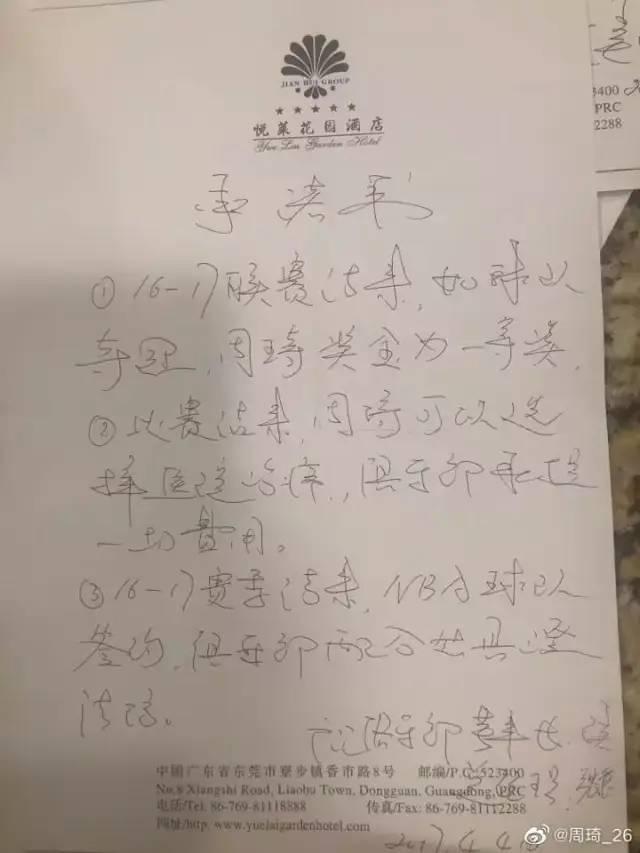 JIAN HUI GROUP
悦莱花园酒店
Yue Lai Garden Hotel
承诺书
①16-17联赛结束,如球队
夺冠,周琦奖金为一等奖,
②比赛结束,周琦可以选
择医院治疗,俱乐部承担
一切费用。
③16-17赛季结束,NBA球队
签约,俱乐部配合出具澄
清信。
俱乐部董事长
中国广东省东莞市寮步镇香市路8号 邮编/P.C:523400
No.8 Xiangshi Road, Liaobu Town, Dongguan, Guangdong, PRC
电话/Tel: 86-769-81118888 传真/Fax: 86-769-81112288
网址/http: www.yuelaigardenhotel.com
2017.4.4
3400
PRC
2288
@周琦_26